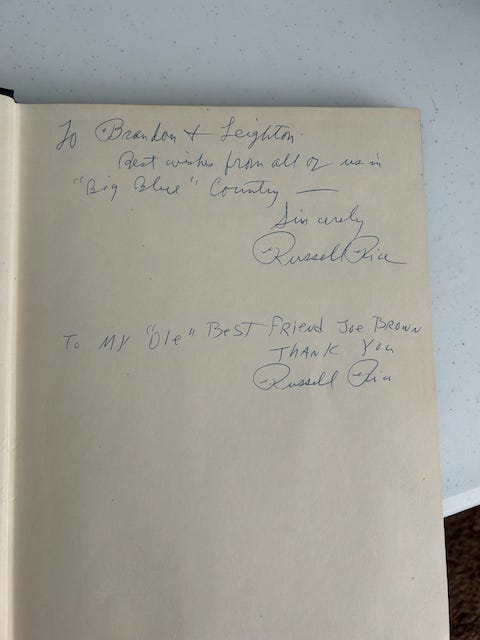 To Brandon & Leighton
Best wishes from all of us in
"Big Blue" Country —
Sincerely
Russell Rice
To MY "Ole" BEST Friend Joe BROWN
THANK You
Russell Rice